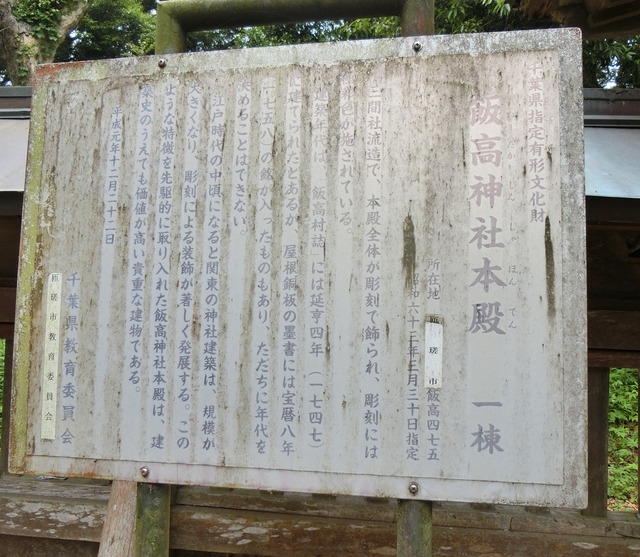 千葉県指定有形文化財
飯高神社本殿 一棟
いい だか じん じゃ ほん でん
所在地 匝瑳市飯高四七五
昭和六十三年三月三十日指定
三間社流造で、本殿全体が彫刻で飾られ、彫刻には
彩色が施されている。
建築年代は、「飯高村誌」には延享四年(一七四七)
に建てられたとあるが、屋根銅板の墨書には宝暦八年
(一七五八)の銘が入ったものもあり、ただちに年代を
決めることはできない。
江戸時代の中頃になると関東の神社建築は、規模が
大きくなり、彫刻による装飾が著しく発展する。この
ような特徴を先駆的に取り入れた飯高神社本殿は、建
築史のうえでも価値が高い貴重な建物である。
平成元年十二月二十二日
千葉県教育委員会
匝瑳市教育委員会